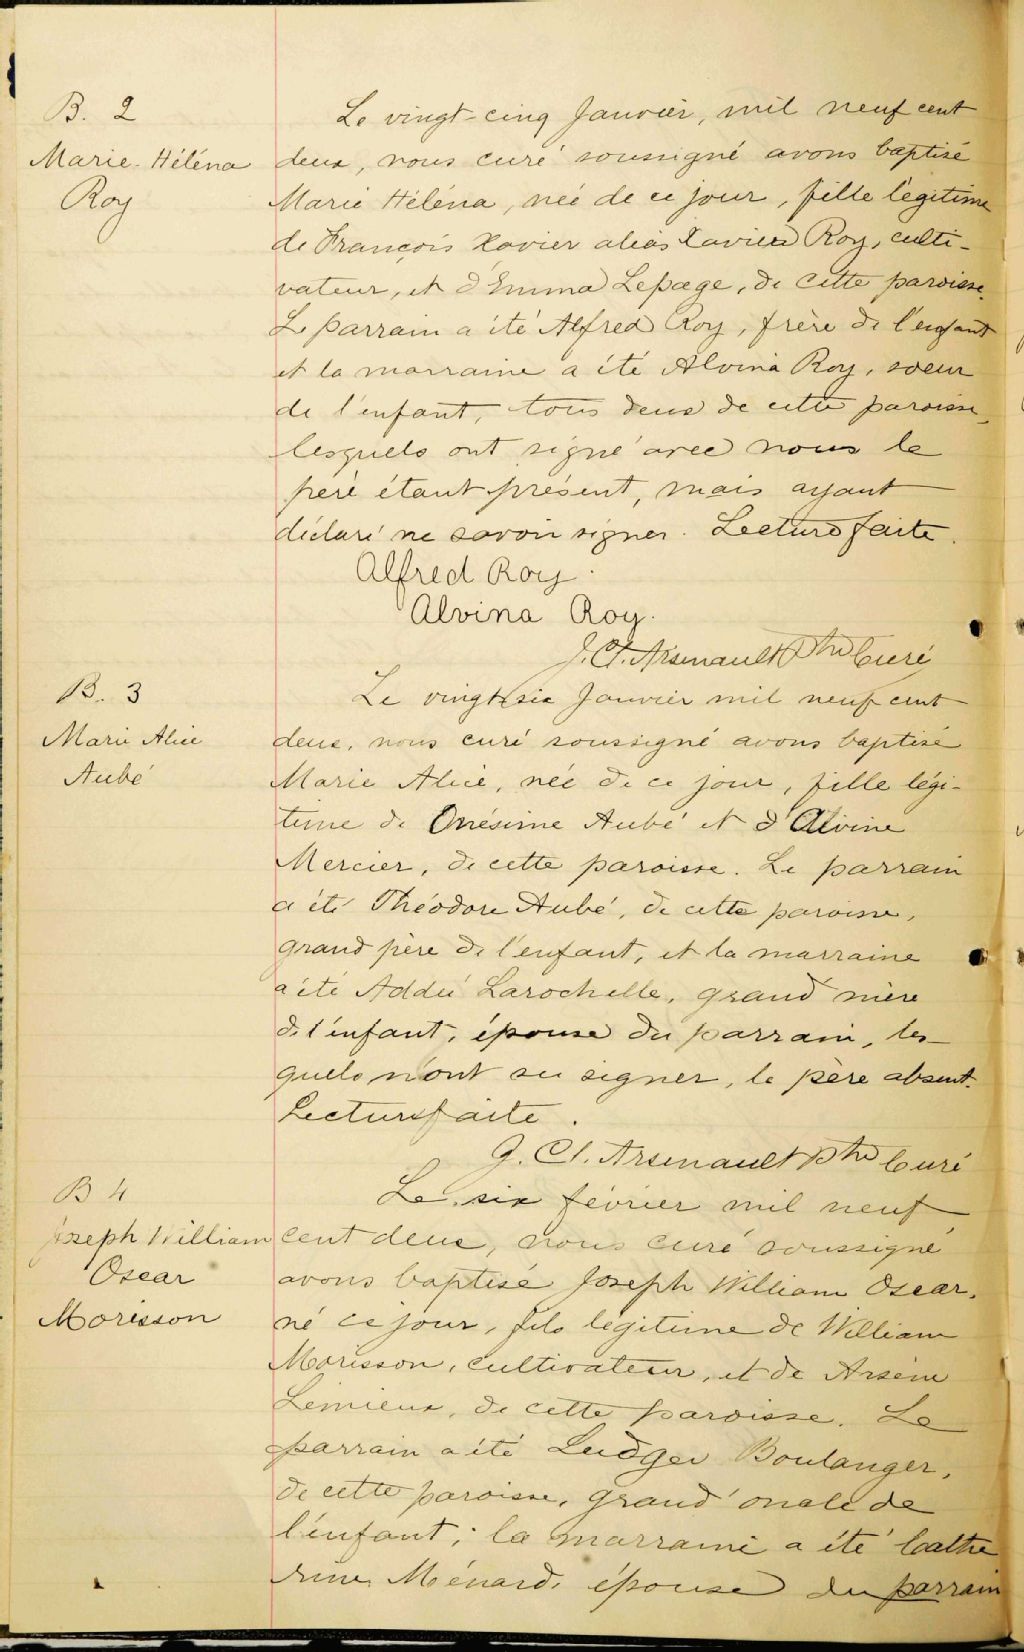 B. 2
Marie Héléna
Roy
Le vingt-cinq Janvier, mil neuf cent
deux, nous curé soussigné avons baptisé
Marie Héléna, née de ce jour, fille légitime
de François Xavier alias Xavier Roy, culti-
vateur, et d'Emma Lepage, de cette paroisse.
Le parrain a été Alfred Roy, frère de l'enfant
et la marraine a été Alvina Roy, soeur
de l'enfant, tous deux de cette paroisse,
lesquels ont signé avec nous le
père étant présent, mais ayant
déclaré ne savoir signer. Lecture faite.
Alfred Roy.
Alvina Roy.
J. Cl. Arsenault Ptre Curé
B. 3
Marie Alice
Aubé
Le vingt-six Janvier mil neuf cent
deux, nous curé soussigné avons baptisé
Marie Alice, née de ce jour, fille légi-
time de Onésime Aubé et d'Alvine
Mercier, de cette paroisse. Le parrain
a été Théodore Aubé, de cette paroisse,
grand père de l'enfant, et la marraine
a été Addée Larochelle, grand'mère
de l'enfant, épouse du parrain, les-
quels n'ont su signer, le père absent.
Lecture faite.
J. Cl. Arsenault Ptre Curé
B 4
Joseph William
Oscar
Morisson
Le six février mil neuf
cent deux, nous curé soussigné
avons baptisé Joseph William Oscar,
né ce jour, fils légitime de William
Morisson, cultivateur, et de Arsène
Lemieux, de cette paroisse. Le
parrain a été Ludger Boulanger,
de cette paroisse, grand'oncle de
l'enfant; la marraine a été Cathe
rine Ménard, épouse du parrain